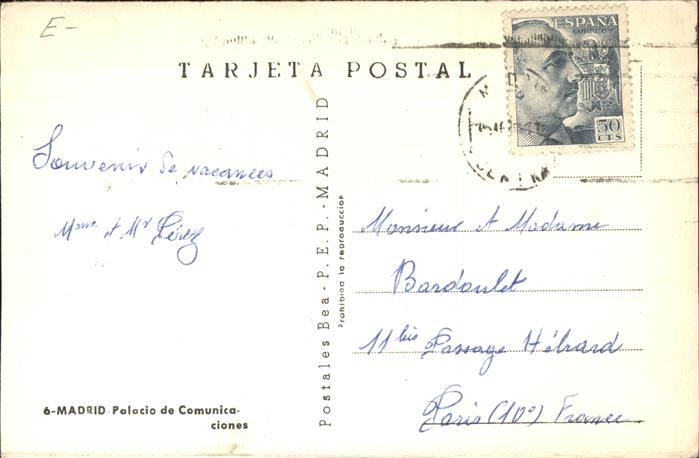 E-
TARJETA POSTAL
ESPAÑA
CORREOS
50
CTS
Souvenir de vacances
Mme et Mr Pérez
Postales Bea - P.E.P. - MADRID
Prohibida la reproducción
Monsieur et Madame
Bardoulet
11 bis Passage Hébrard
Paris (10º) France
6-MADRID-Palacio de Comunica-
ciones